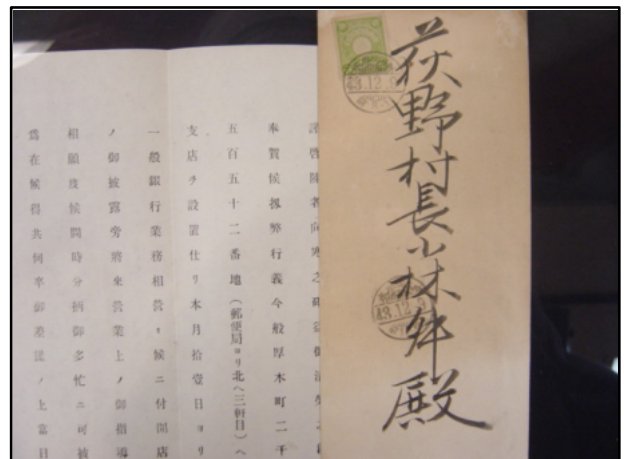 荻野村長小林殿
43.12.9
43.12.9
謹啓陳者向寒之砌益御清
奉賀候扨弊行義今般厚木町二千
五百五十二番地(郵便局ヨリ北ヘ三軒目)ヘ
支店ヲ設置仕リ本月拾壹日ヨリ
一般銀行業務相營ミ候ニ付開店
ノ御披露旁將來營業上ノ御指導
相願度候間時分柄御多忙ニ可被
爲在候得共何卒御差繰ノ上當日